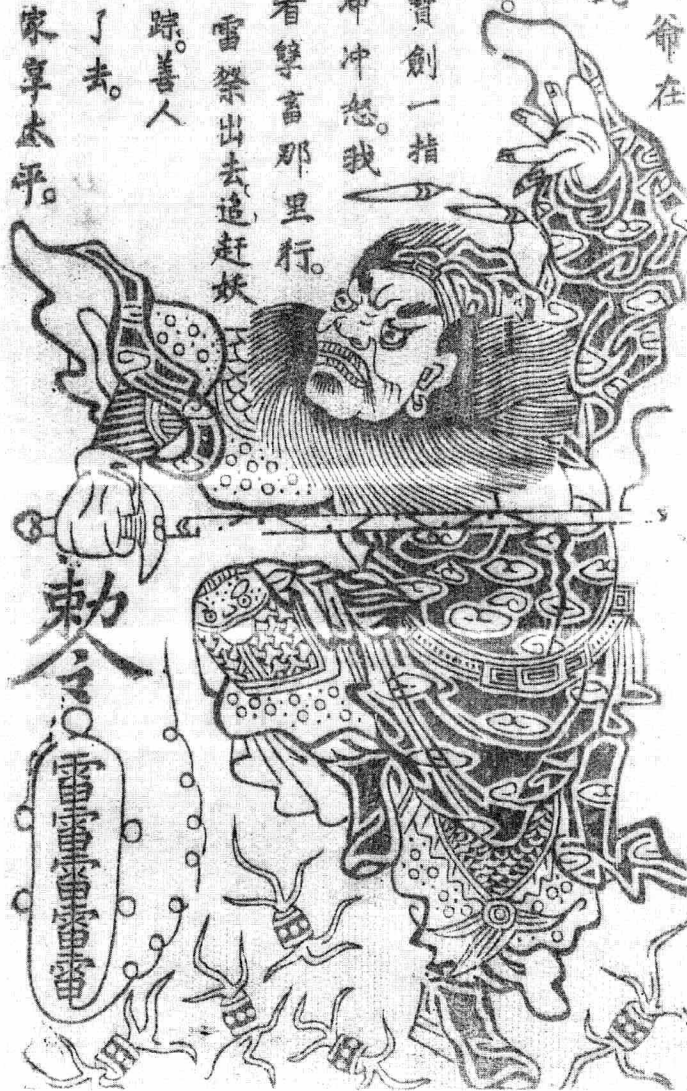 爺在
寶劍一指
冲冲怒。我
看孽畜那里行。
雷祭出去追赶妖
踪。善人
了去。
家享太平。
勅令
雷雷雷雷雷